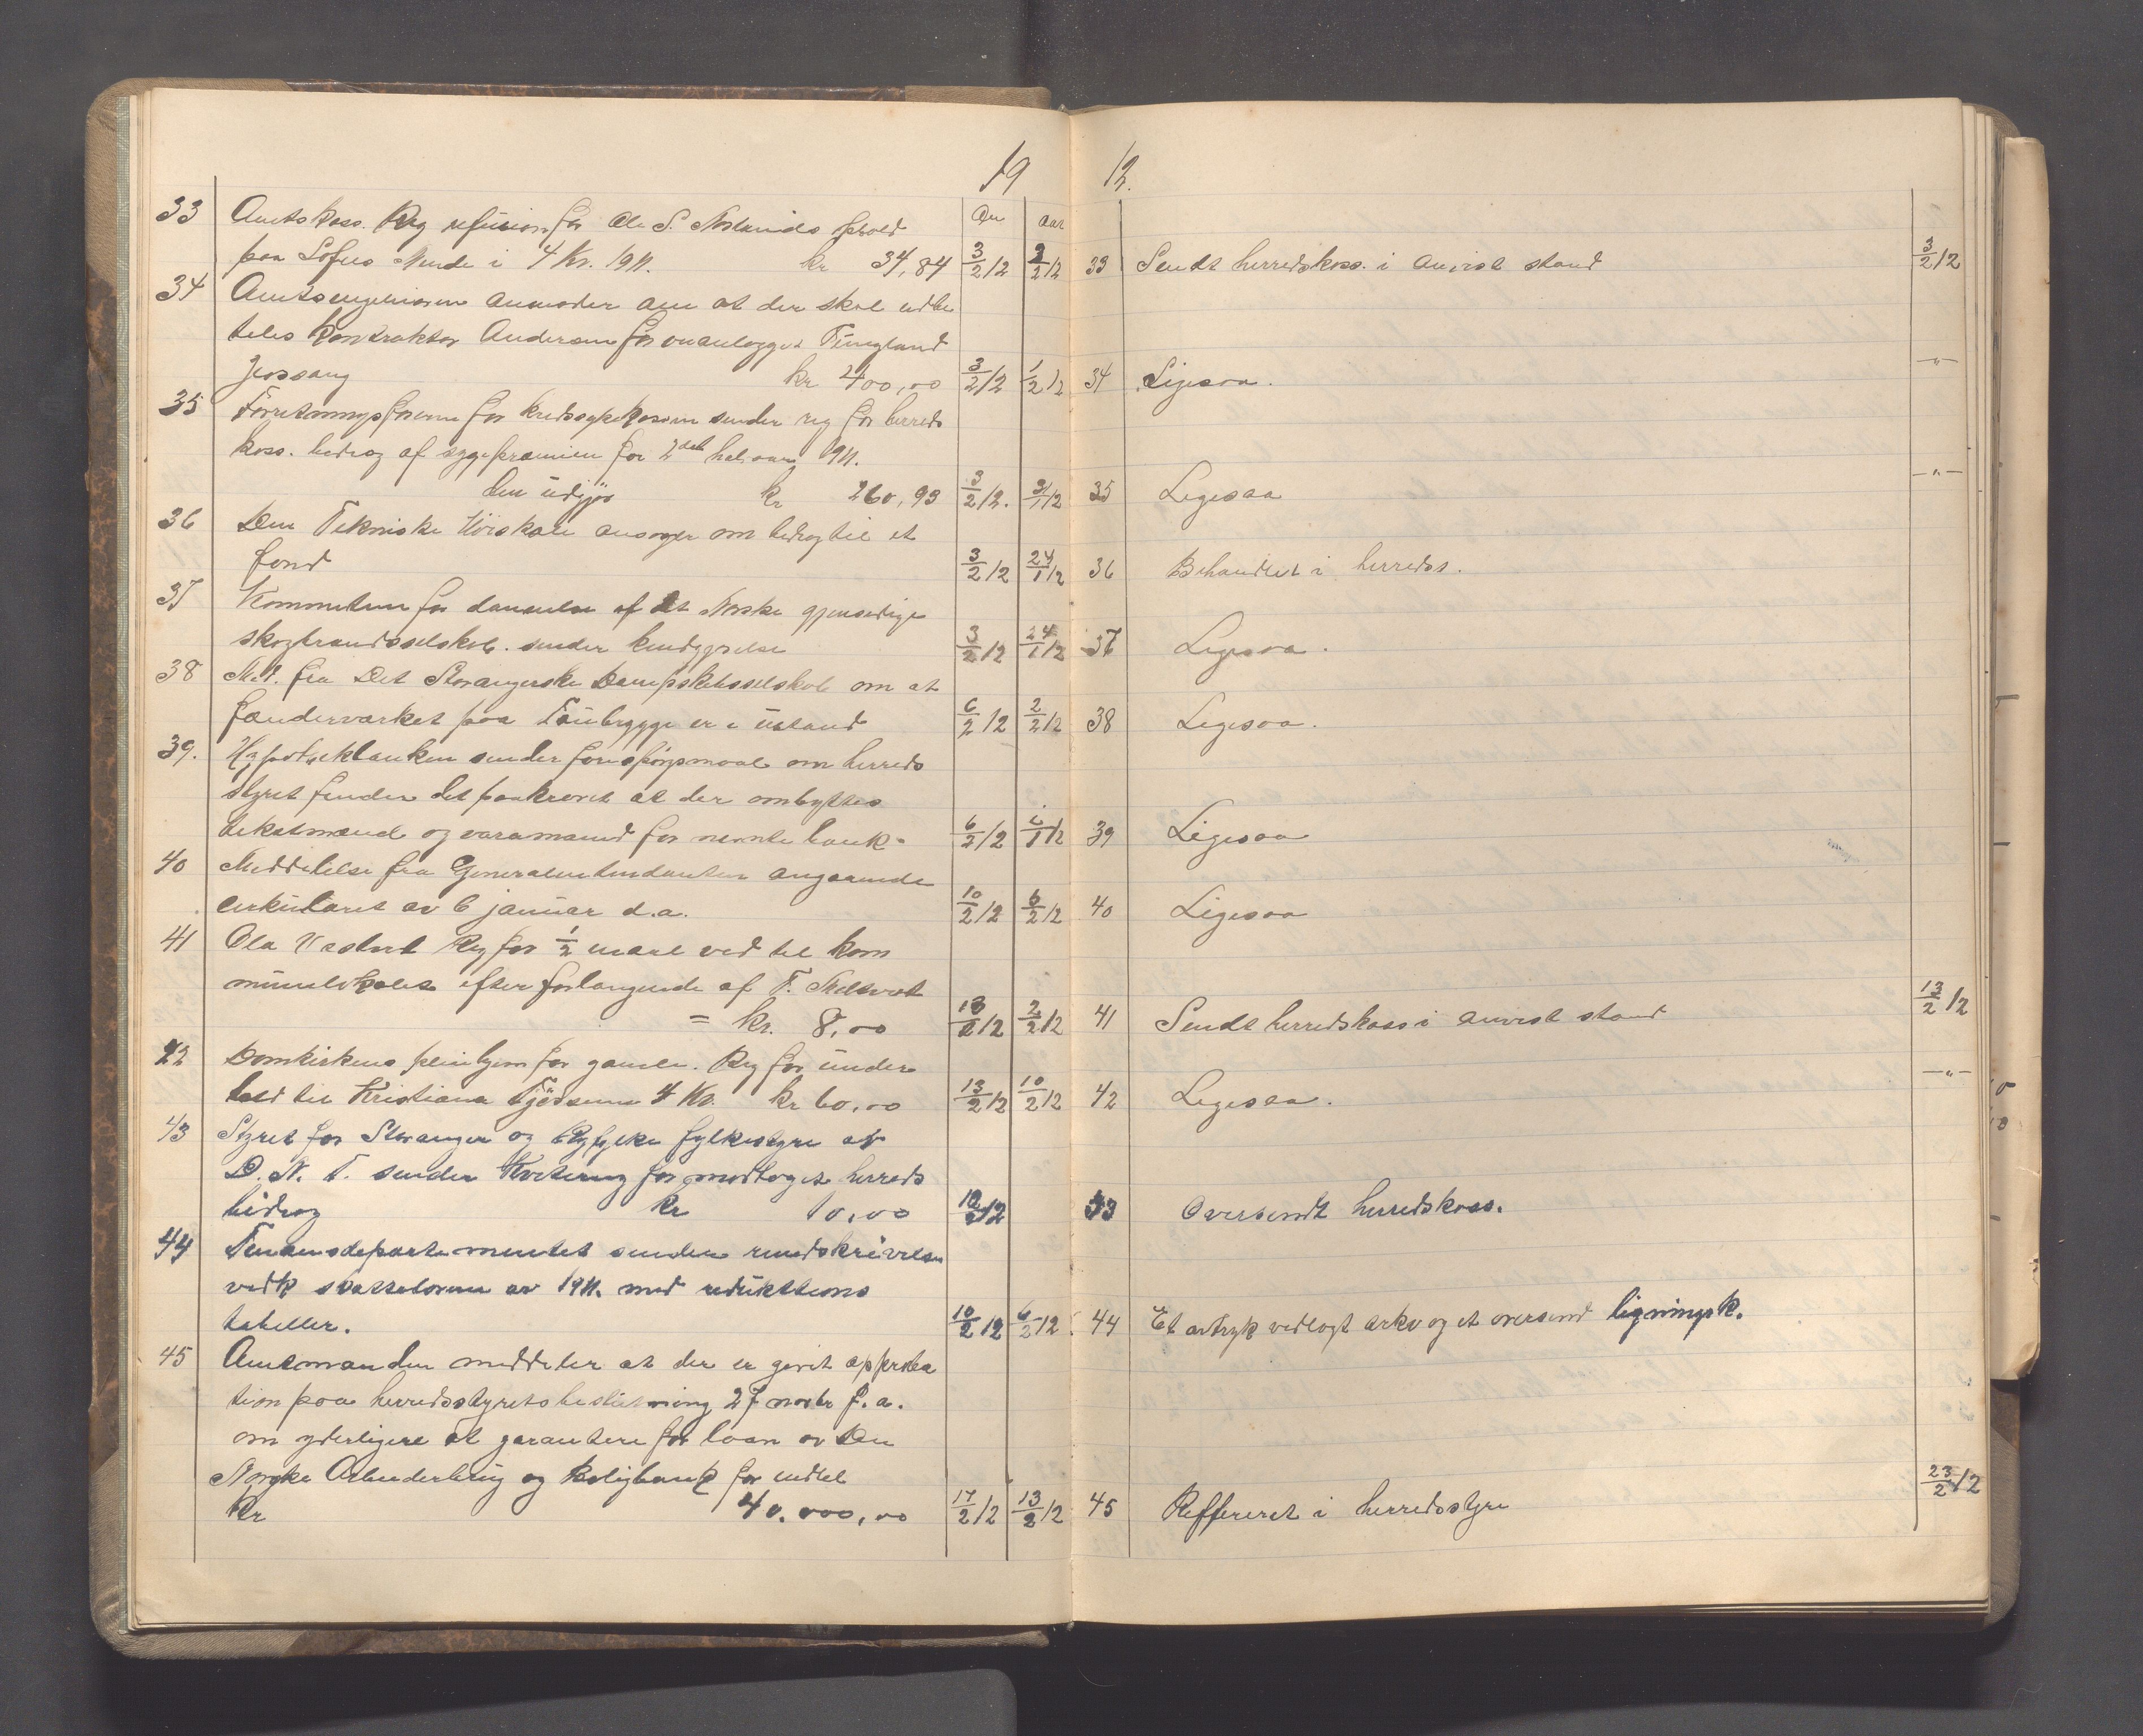 19 12.
An Aar
33 Amtskass. Rég refusion for Ole S. Norlands
paa Sofus Minde i 4 Kv. 1911. kr 34,84 3/2 12 3/2 12 33 Sendt herredskass. i anvist stand 3/2 12
34 Amtsingeniøren anmoder om at der skal udbe
tales Kontraktør Andersen for veianlægget Tungland
Jøssang kr 400,00 3/2 12 1/2 12 34 Ligesaa. —"—
35 Forretningsføreren for kredssykekassen sender rég for herreds
kass. bidrag af sygepræmien for 2det halvaar 1911.
den udgjør kr 260,93 3/2 12. 3/1 12 35 Ligesaa —"—
36 Den Tekniske Høiskole ansøger om bidrag til et
fond 3/2 12 24/1 12 36 Behandlet i herreds.
37 Kommiteen for dannelse af det Norske gjensidige
skogbrandsselskab. sender kundgjørelse 3/2 12 24/1 12 37 Ligesaa.
38 Med. fra Det Stavangerske Dampskibsselskab om at
fændervarket paa Taubrygge er i ustand 6/2 12 2/2 12 38 Ligesaa.
39. Hypothekbanken sender forespørgsmaal om herreds
styret finder det paakrevet at der ombyttes
takstmænd og varamænd for nævnte bank. 6/2 12 39 Ligesaa
40 Meddelelse fra Generalintendanten angaaende
cirkulæret av 6 januar d.a. 10/2 12 6/2 12 40 Ligesaa
41 Ola Rég for 1/2 maal ved til kom
munelokalet efter forlangende af T. = kr. 8,00 13/2 12 2/2 12 41 Sendt herredskass i anvist stand 13/2 12
42 Domkirkens pleiehjem for gamle. Rég for under
hold til Kristiana 4 Kv. kr 60,00 13/2 12 10/2 12 42 Ligesaa. —"—
43 Styret for Stavanger og Ryfylke fylkestyre av
D. N. T. sender Kvitering for modtaget herreds
bidrag kr 10,00 12 43 Oversendt herredskass.
44 Finansdepartementet sender rundskrivelse
vedk skatteloven av 1911. med reduktions
tabeller. 10/2 12 6/2 12 44 Et avtryk vedlagt arkiv og et oversend ligningsk.
45 Amtmanden meddeler at der er givet approba
tion paa herredsstyrets beslutning 27 novbr f.a.
om yderligere at garantere for laan av Den
Norske Arbeiderbrug og Boligbank for indtil
Kr 40.000,00 17/2 12 13/2 12 45 Reffereret i herredsstyre 23/2 12